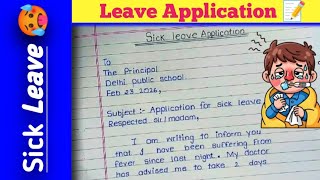 Leave Application
Sick Leave
Sick leave Application
To
The Principal
Delhi public school
Feb 23 2026,
Subject :- Application for sick leave
Respected sir/madam,
I am writing to inform you
that I have been suffering from
fever since last night. My doctor
has advised me to take 2 days